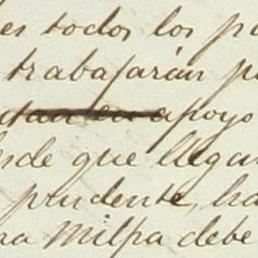 es todos los p
trabajarán p
apoyo
sde que llegar
prudente, ha
na Milpa debe